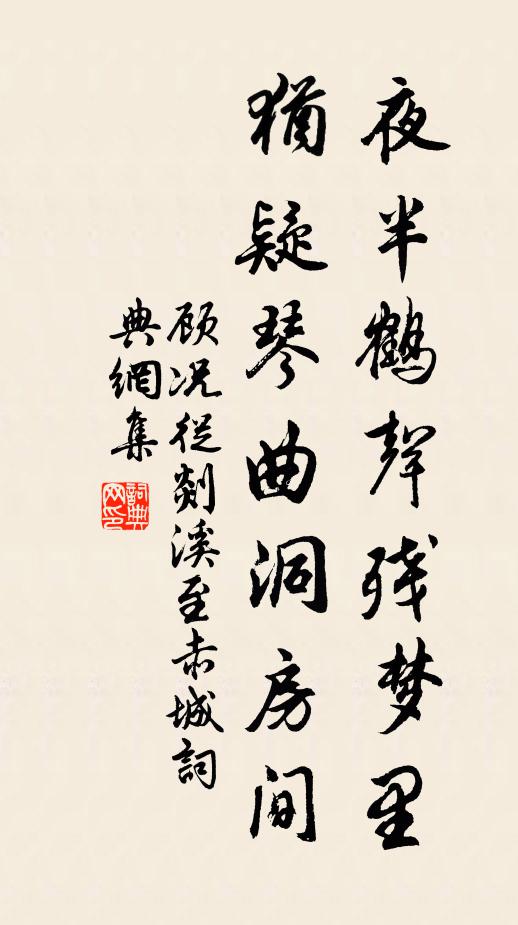 夜半鹤聲残梦里
猶疑琴曲洞房间
顾况從剡溪至赤城詞
典網集
詞典网印